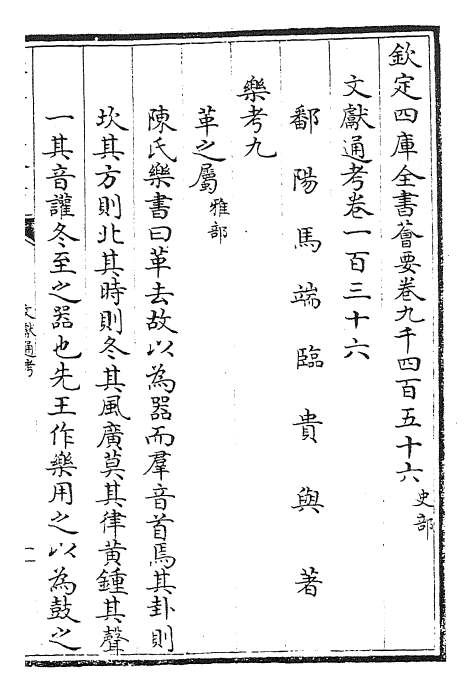 欽定四庫全書薈要卷九千四百五十六史部
文獻通考卷一百三十六
鄱陽馬端臨貴與著
樂考九
革之屬雅部
陳氏樂書曰革去故以為器而羣音首焉其卦則
坎其方則北其時則冬其風廣莫其律黃鍾其聲
一其音讙冬至之器也先王作樂用之以為鼓之
文獻通考